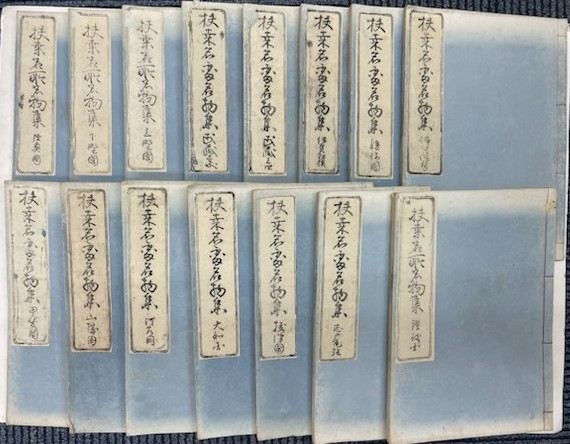 扶桑名所名物集
扶桑名所名物集 駿河国
扶桑名所名物集
扶桑名所名物集
扶桑名所名物集
扶桑名所名物集 上野國
扶桑名所名物集 下野國
扶桑名所名物集 陸奥国
扶桑名所名物集
扶桑名所名物集
扶桑名所名物集 摂津国
扶桑名所名物集 大和国
扶桑名所名物集 河内国
扶桑名所名物集 山城国
扶桑名所名物集 甲斐国